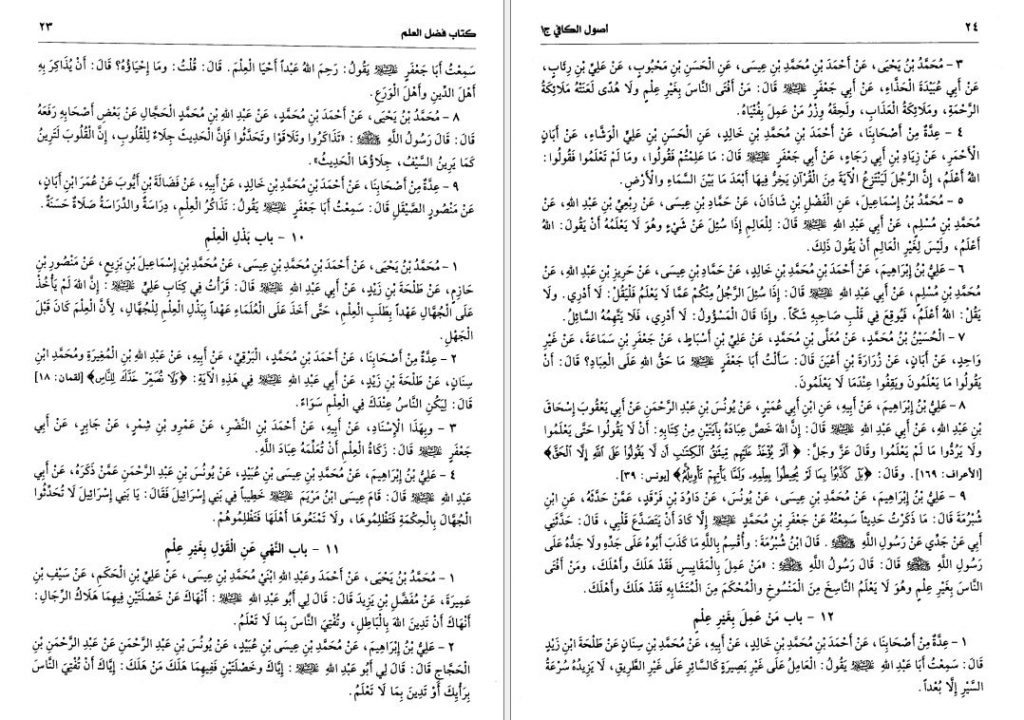 كتاب فضل العلم ٢٣
سَمِعْتُ أَبَا جَعْفَرٍ عليه السلام يَقُولُ: رَحِمَ اللهُ عَبْداً أَحْيَا الْعِلْمَ. قَالَ: قُلْتُ: وَمَا إِحْيَاؤُهُ؟ قَالَ: أَنْ يُذَاكِرَ بِهِ
أَهْلَ الدِّينِ وَأَهْلَ الْوَرَعِ.
٨ - مُحَمَّدُ بْنُ يَحْيَى، عَنْ أَحْمَدَ بْنِ مُحَمَّدٍ، عَنْ عَبْدِ اللهِ بْنِ مُحَمَّدٍ الْحَجَّالِ عَنْ بَعْضِ أَصْحَابِهِ رَفَعَهُ
قَالَ: قَالَ رَسُولُ اللَّهِ ﷺ: «تَذَاكَرُوا وَتَلَاقَوْا وَتَحَدَّثُوا فَإِنَّ الْحَدِيثَ جِلَاءٌ لِلْقُلُوبِ، إِنَّ الْقُلُوبَ لَتَرِينُ
كَمَا يَرِينُ السَّيْفُ، جِلَاؤُهَا الْحَدِيثُ».
٩ - عِدَّةٌ مِنْ أَصْحَابِنَا، عَنْ أَحْمَدَ بْنِ مُحَمَّدِ بْنِ خَالِدٍ، عَنْ أَبِيهِ، عَنْ فَضَالَةَ بْنِ أَيُّوبَ عَنْ عُمَرَ ابْنِ أَبَانٍ،
عَنْ مَنْصُورٍ الصَّيْقَلِ قَالَ: سَمِعْتُ أَبَا جَعْفَرٍ عليه السلام يَقُولُ: تَذَاكُرُ الْعِلْمِ، دِرَاسَةٌ وَالدِّرَاسَةُ صَلَاةٌ حَسَنَةٌ.
١٠ - باب بَذْلِ الْعِلْمِ
١ - مُحَمَّدُ بْنُ يَحْيَى، عَنْ أَحْمَدَ بْنِ مُحَمَّدِ بْنِ عِيسَى، عَنْ مُحَمَّدِ بْنِ إِسْمَاعِيلَ بْنِ بَزِيعٍ، عَنْ مَنْصُورِ بْنِ
حَازِمٍ، عَنْ طَلْحَةَ بْنِ زَيْدٍ، عَنْ أَبِي عَبْدِ اللهِ عليه السلام قَالَ: قَرَأْتُ فِي كِتَابِ عَلِيٍّ عليه السلام: إِنَّ اللهَ لَمْ يَأْخُذْ
عَلَى الْجُهَّالِ عَهْداً بِطَلَبِ الْعِلْمِ، حَتَّى أَخَذَ عَلَى الْعُلَمَاءِ عَهْداً بِبَذْلِ الْعِلْمِ لِلْجُهَّالِ، لأَنَّ الْعِلْمَ كَانَ قَبْلَ
الْجَهْلِ.
٢ - عِدَّةٌ مِنْ أَصْحَابِنَا، عَنْ أَحْمَدَ بْنِ مُحَمَّدٍ، الْبَرْقِيِّ، عَنْ أَبِيهِ، عَنْ عَبْدِ اللهِ بْنِ الْمُغِيرَةِ وَمُحَمَّدِ ابْنِ
سِنَانٍ، عَنْ طَلْحَةَ بْنِ زَيْدٍ، عَنْ أَبِي عَبْدِ اللهِ عليه السلام فِي هَذِهِ الْآيَةِ: ﴿وَلَا تُصَعِّرْ خَدَّكَ لِلنَّاسِ﴾ [لقمان: ١٨]
قَالَ: لِيَكُنِ النَّاسُ عِنْدَكَ فِي الْعِلْمِ سَوَاءً.
٣ - وَبِهَذَا الْإِسْنَادِ، عَنْ أَبِيهِ، عَنْ أَحْمَدَ بْنِ النَّضْرِ، عَنْ عَمْرِو بْنِ شِمْرٍ، عَنْ جَابِرٍ، عَنْ أَبِي
جَعْفَرٍ عليه السلام قَالَ: زَكَاةُ الْعِلْمِ أَنْ تُعَلِّمَهُ عِبَادَ اللَّهِ.
٤ - عَلِيُّ بْنُ إِبْرَاهِيمَ، عَنْ مُحَمَّدِ بْنِ عِيسَى بْنِ عُبَيْدٍ، عَنْ يُونُسَ بْنِ عَبْدِ الرَّحْمَنِ عَمَّنْ ذَكَرَهُ، عَنْ أَبِي
عَبْدِ اللهِ عليه السلام قَالَ: قَامَ عِيسَى ابْنُ مَرْيَمَ عليه السلام خَطِيباً فِي بَنِي إِسْرَائِيلَ فَقَالَ: يَا بَنِي إِسْرَائِيلَ لَا تُحَدِّثُوا
الْجُهَّالَ بِالْحِكْمَةِ فَتَظْلِمُوهَا، وَلَا تَمْنَعُوهَا أَهْلَهَا فَتَظْلِمُوهُمْ.
١١ - باب النَّهْيِ عَنِ الْقَوْلِ بِغَيْرِ عِلْمٍ
١ - مُحَمَّدُ بْنُ يَحْيَى، عَنْ أَحْمَدَ وَعَبْدِ اللهِ ابْنَيْ مُحَمَّدِ بْنِ عِيسَى، عَنْ عَلِيِّ بْنِ الْحَكَمِ، عَنْ سَيْفِ بْنِ
عَمِيرَةَ، عَنْ مُفَضَّلِ بْنِ يَزِيدَ قَالَ: قَالَ لِي أَبُو عَبْدِ اللهِ عليه السلام: أَنْهَاكَ عَنْ خَصْلَتَيْنِ فِيهِمَا هَلَاكُ الرِّجَالِ:
أَنْهَاكَ أَنْ تَدِينَ اللهَ بِالْبَاطِلِ، وَتُفْتِيَ النَّاسَ بِمَا لَا تَعْلَمُ.
٢ - عَلِيُّ بْنُ إِبْرَاهِيمَ، عَنْ مُحَمَّدِ بْنِ عِيسَى بْنِ عُبَيْدٍ، عَنْ يُونُسَ بْنِ عَبْدِ الرَّحْمَنِ عَنْ عَبْدِ الرَّحْمَنِ بْنِ
الْحَجَّاجِ قَالَ: قَالَ لِي أَبُو عَبْدِ اللهِ عليه السلام: إِيَّاكَ وَخَصْلَتَيْنِ فَفِيهِمَا هَلَكَ مَنْ هَلَكَ: إِيَّاكَ أَنْ تُفْتِيَ النَّاسَ
بِرَأْيِكَ أَوْ تَدِينَ بِمَا لَا تَعْلَمُ.
٢٤ اصول الكافي ج١
٣ - مُحَمَّدُ بْنُ يَحْيَى، عَنْ أَحْمَدَ بْنِ مُحَمَّدِ بْنِ عِيسَى، عَنِ الْحَسَنِ بْنِ مَحْبُوبٍ، عَنْ عَلِيِّ بْنِ رِئَابٍ،
عَنْ أَبِي عُبَيْدَةَ الْحَذَّاءِ، عَنْ أَبِي جَعْفَرٍ عليه السلام قَالَ: مَنْ أَفْتَى النَّاسَ بِغَيْرِ عِلْمٍ وَلَا هُدًى لَعَنَتْهُ مَلَائِكَةُ
الرَّحْمَةِ، وَمَلَائِكَةُ الْعَذَابِ، وَلَحِقَهُ وِزْرُ مَنْ عَمِلَ بِفُتْيَاهُ.
٤ - عِدَّةٌ مِنْ أَصْحَابِنَا، عَنْ أَحْمَدَ بْنِ مُحَمَّدِ بْنِ خَالِدٍ، عَنِ الْحَسَنِ بْنِ عَلِيٍّ الْوَشَّاءِ، عَنْ أَبَانٍ
الْأَحْمَرِ، عَنْ زِيَادِ بْنِ أَبِي رَجَاءٍ، عَنْ أَبِي جَعْفَرٍ عليه السلام قَالَ: مَا عَلِمْتُمْ فَقُولُوا، وَمَا لَمْ تَعْلَمُوا فَقُولُوا:
اللهُ أَعْلَمُ، إِنَّ الرَّجُلَ لَيَنْتَزِعُ الْآيَةَ مِنَ الْقُرْآنِ يَخِرُّ فِيهَا أَبْعَدَ مَا بَيْنَ السَّمَاءِ وَالْأَرْضِ.
٥ - مُحَمَّدُ بْنُ إِسْمَاعِيلَ، عَنِ الْفَضْلِ بْنِ شَاذَانَ، عَنْ حَمَّادِ بْنِ عِيسَى، عَنْ رِبْعِيِّ بْنِ عَبْدِ اللهِ، عَنْ
مُحَمَّدِ بْنِ مُسْلِمٍ، عَنْ أَبِي عَبْدِ اللهِ عليه السلام قَالَ: لِلْعَالِمِ إِذَا سُئِلَ عَنْ شَيْءٍ وَهُوَ لَا يَعْلَمُهُ أَنْ يَقُولَ: اللهُ
أَعْلَمُ، وَلَيْسَ لِغَيْرِ الْعَالِمِ أَنْ يَقُولَ ذَلِكَ.
٦ - عَلِيُّ بْنُ إِبْرَاهِيمَ، عَنْ أَحْمَدَ بْنِ مُحَمَّدِ بْنِ خَالِدٍ، عَنْ حَمَّادِ بْنِ عِيسَى، عَنْ حَرِيزِ بْنِ عَبْدِ اللهِ، عَنْ
مُحَمَّدِ بْنِ مُسْلِمٍ، عَنْ أَبِي عَبْدِ اللهِ عليه السلام قَالَ: إِذَا سُئِلَ الرَّجُلُ مِنْكُمْ عَمَّا لَا يَعْلَمُ فَلْيَقُلْ: لَا أَدْرِي. وَلَا
يَقُلْ: اللهُ أَعْلَمُ، فَيُوقِعَ فِي قَلْبِ صَاحِبِهِ شَكّاً. وَإِذَا قَالَ الْمَسْؤُولُ: لَا أَدْرِي، فَلَا يَتَّهِمُهُ السَّائِلُ.
٧ - الْحُسَيْنُ بْنُ مُحَمَّدٍ، عَنْ مُعَلَّى بْنِ مُحَمَّدٍ، عَنْ عَلِيِّ بْنِ أَسْبَاطٍ، عَنْ جَعْفَرِ بْنِ سَمَاعَةَ، عَنْ غَيْرِ
وَاحِدٍ، عَنْ أَبَانٍ، عَنْ زُرَارَةَ بْنِ أَعْيَنَ قَالَ: سَأَلْتُ أَبَا جَعْفَرٍ عليه السلام مَا حَقُّ اللهِ عَلَى الْعِبَادِ؟ قَالَ: أَنْ
يَقُولُوا مَا يَعْلَمُونَ وَيَقِفُوا عِنْدَمَا لَا يَعْلَمُونَ.
٨ - عَلِيُّ بْنُ إِبْرَاهِيمَ، عَنْ أَبِيهِ، عَنِ ابْنِ أَبِي عُمَيْرٍ، عَنْ يُونُسَ بْنِ عَبْدِ الرَّحْمَنِ عَنْ أَبِي يَعْقُوبَ إِسْحَاقَ
بْنِ عَبْدِ اللهِ، عَنْ أَبِي عَبْدِ اللهِ عليه السلام قَالَ: إِنَّ اللهَ خَصَّ عِبَادَهُ بِآيَتَيْنِ مِنْ كِتَابِهِ: أَنْ لَا يَقُولُوا حَتَّى يَعْلَمُوا
وَلَا يَرُدُّوا مَا لَمْ يَعْلَمُوا وَقَالَ عَزَّ وَجَلَّ: ﴿أَلَمْ يُؤْخَذْ عَلَيْهِم مِّيثَاقُ الْكِتَابِ أَن لَّا يَقُولُوا عَلَى اللَّهِ إِلَّا الْحَقَّ﴾
[الأعراف: ١٦٩]. وَقَالَ: ﴿بَلْ كَذَّبُوا بِمَا لَمْ يُحِيطُوا بِعِلْمِهِ، وَلَمَّا يَأْتِهِمْ تَأْوِيلُهُ﴾ [يونس: ٣٩].
٩ - عَلِيُّ بْنُ إِبْرَاهِيمَ، عَنْ مُحَمَّدِ بْنِ عِيسَى، عَنْ يُونُسَ، عَنْ دَاوُدَ بْنِ فَرْقَدٍ، عَمَّنْ حَدَّثَهُ، عَنِ ابْنِ
شُبْرُمَةَ قَالَ: مَا ذَكَرْتُ حَدِيثاً سَمِعْتُهُ عَنْ جَعْفَرِ بْنِ مُحَمَّدٍ عليه السلام إِلَّا كَادَ أَنْ يَتَصَدَّعَ قَلْبِي، قَالَ: حَدَّثَنِي
أَبِي عَنْ جَدِّي عَنْ رَسُولِ اللهِ ﷺ. قَالَ ابْنُ شُبْرُمَةَ: وَأُقْسِمُ بِاللَّهِ مَا كَذَبَ أَبُوهُ عَلَى جَدِّهِ وَلَا جَدُّهُ عَلَى
رَسُولِ اللهِ ﷺ قَالَ: قَالَ رَسُولُ اللهِ ﷺ: «مَنْ عَمِلَ بِالْمَقَايِيسِ فَقَدْ هَلَكَ وَأَهْلَكَ، وَمَنْ أَفْتَى
النَّاسَ بِغَيْرِ عِلْمٍ وَهُوَ لَا يَعْلَمُ النَّاسِخَ مِنَ الْمَنْسُوخِ وَالْمُحْكَمَ مِنَ الْمُتَشَابِهِ فَقَدْ هَلَكَ وَأَهْلَكَ.
١٢ - باب مَنْ عَمِلَ بِغَيْرِ عِلْمٍ
١ - عِدَّةٌ مِنْ أَصْحَابِنَا، عَنْ أَحْمَدَ بْنِ مُحَمَّدِ بْنِ خَالِدٍ، عَنْ أَبِيهِ، عَنْ مُحَمَّدِ بْنِ سِنَانٍ عَنْ طَلْحَةَ ابْنِ زَيْدٍ
قَالَ: سَمِعْتُ أَبَا عَبْدِ اللهِ عليه السلام يَقُولُ: الْعَامِلُ عَلَى غَيْرِ بَصِيرَةٍ كَالسَّائِرِ عَلَى غَيْرِ الطَّرِيقِ، لَا يَزِيدُهُ سُرْعَةُ
السَّيْرِ إِلَّا بُعْداً.